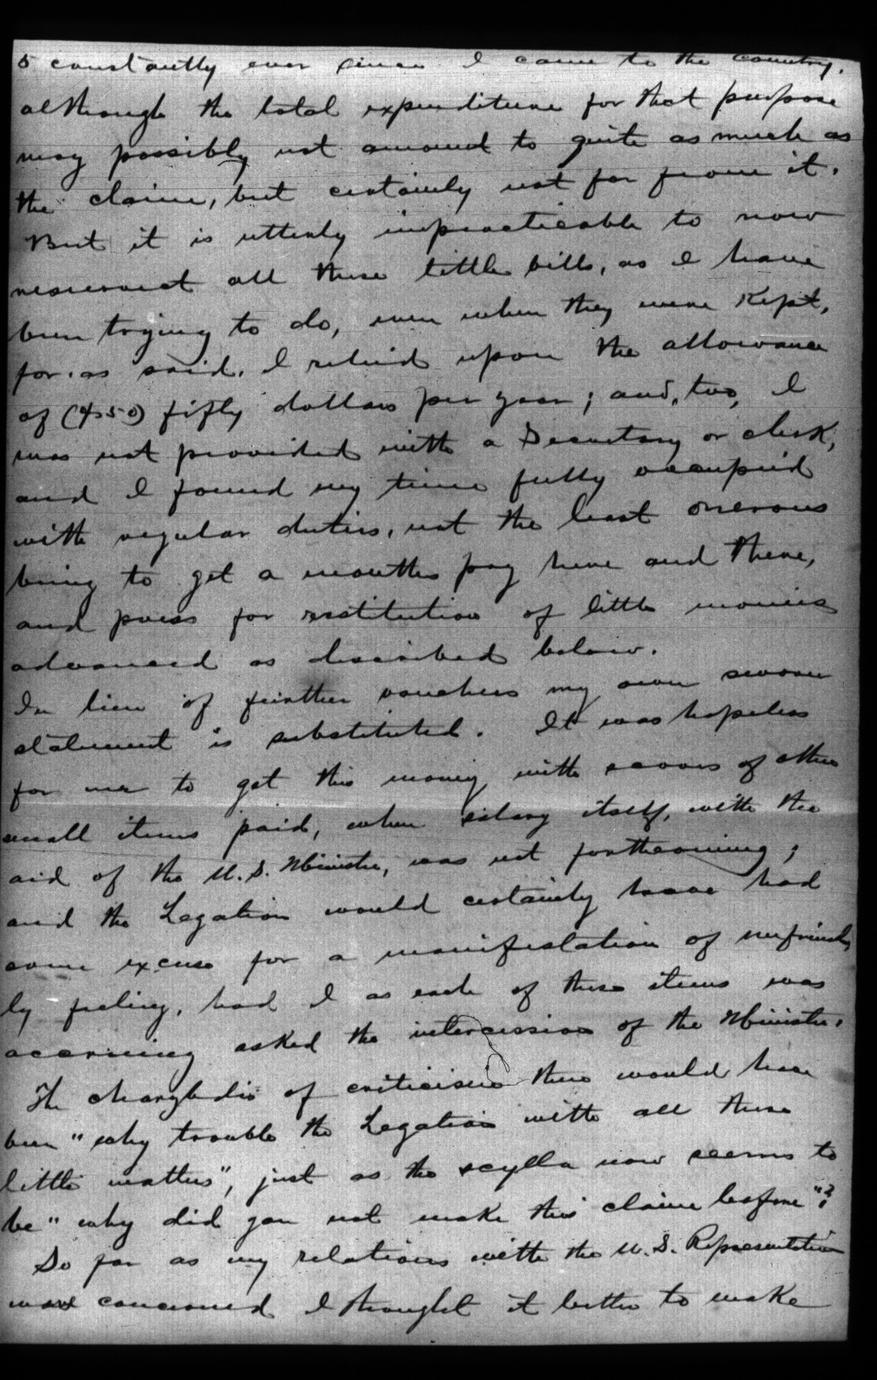 s constantly ever since I came to the country,
although the total expenditure for that purpose
may possibly not amount to quite as much as
the claim, but certainly not far from it.
But it is utterly impracticable to now
resurrect all these little bills, as I have
been trying to do, even when they were kept,
for as said, I relied upon the allowance
of ($50) fifty dollars per year; and, too, I
was not provided with a Secretary or clerk,
and I found my time fully occupied
with regular duties, not the least onerous
being to get a months pay here and there,
and press for restitution of little monies
advanced as described below.
In lieu of further vouchers my own sworn
statement is substituted. It was hopeless
for me to get this money with scores of other
small items paid, when salary itself, with the
aid of the U.S. Minister, was not forthcoming;
and the Legation would certainly have had
some excuse for a manifestation of unfriend
ly feeling, had I as each of these items was
accruing asked the intercession of the Minister.
The charybdis of criticism then would have
been "why trouble the Legation with all these
little matters", just as the scylla now seems to
be "why did you not make this claim before"?
So far as my relations with the U.S. Representative
was concerned I thought it better to make